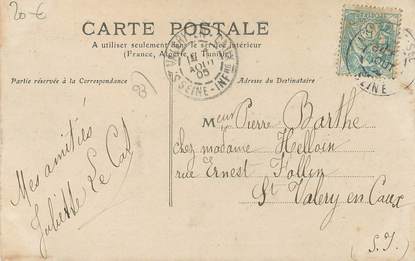 20 €
CARTE POSTALE
A utiliser seulement dans le service intérieur
(France, Algérie et Tunisie)
Partie réservée à la Correspondance
Adresse du Destinataire
AOUT
05
SEINE-INF
Mes amitiés
Juliette Le Cat
Meur Pierre Barthe
chez madame Helloin
rue Ernest Follin
St Valery en Caux
(S.I.)